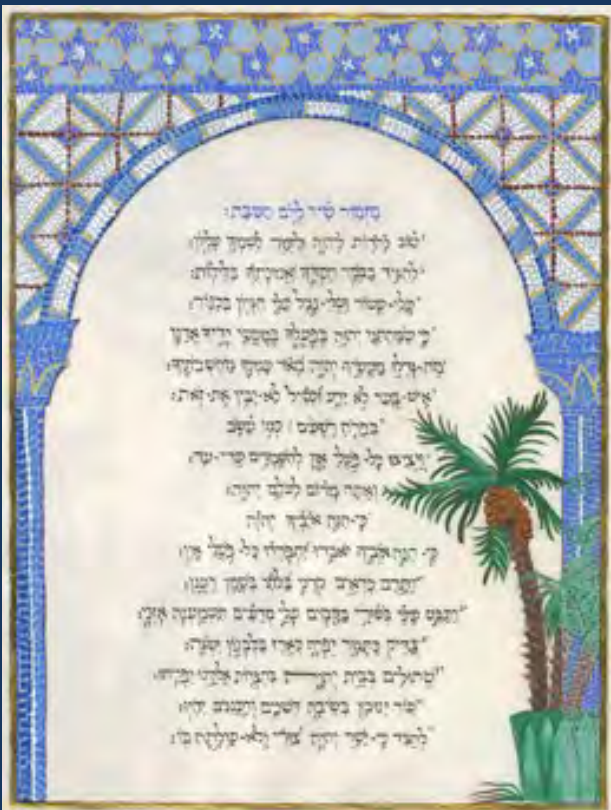 מזמור שיר ליום השבת:
טוב להדות ליהוה ולזמר לשמך עליון:
להגיד בבקר חסדך ואמונתך בלילות:
עלי-עשור ועלי-נבל עלי הגיון בכנור:
כי שמחתני יהוה בפעלך במעשי ידיך ארנן
מה-גדלו מעשיך יהוה מאד עמקו מחשבתיך:
איש-בער לא ידע וכסיל לא-יבין את-זאת:
בפרח רשעים | כמו עשב
ויציצו כל-פעלי און להשמדם עדי-עד:
ואתה מרום לעלם יהוה:
כי הנה איביך יהוה
כי-הנה איביך יאבדו יתפרדו כל-פעלי און:
ותרם כראים קרני בלתי בשמן רענן:
ותבט עיני בשורי בקמים עלי מרעים תשמענה אזני:
צדיק כתמר יפרח כארז בלבנון ישגה:
שתולים בבית יהוה בחצרות אלהינו יפריחו:
עוד ינובון בשיבה דשנים ורעננים יהיו:
להגיד כי-ישר יהוה צורי ולא-עולתה בו: